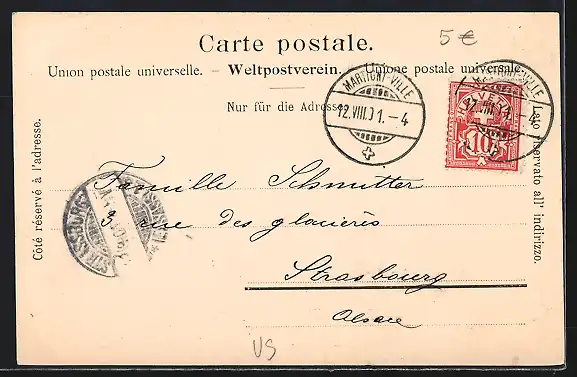 5 €
Carte postale.
Union postale universelle. – Weltpostverein. – Unione postale universale.
Nur für die Adresse.
MARTIGNY-VILLE
12.VIII.01.–4
MARTIGNY-VILLE
12.VIII.01.–4
HELVETIA
10
Côté réservé à l'adresse.
Lato riservato all' indirizzo.
STRASSBURG
Famille Schmitter
3 rue des glacières
Strasbourg
Alsace
VS